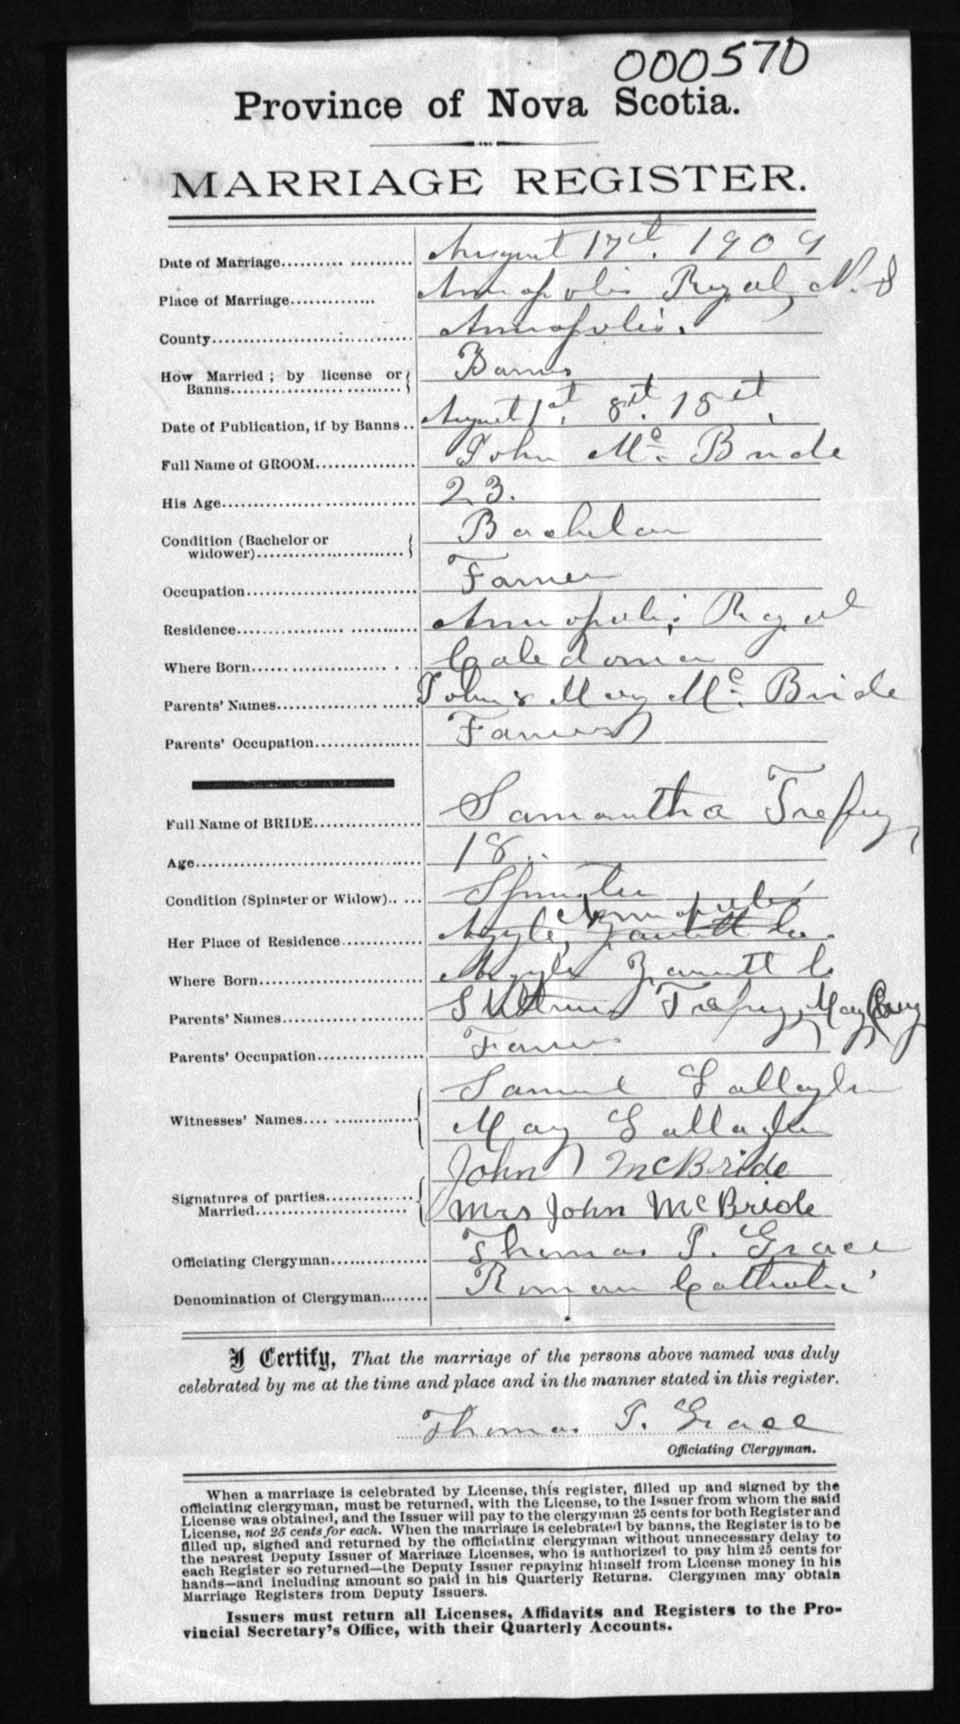 000570
Province of Nova Scotia.
MARRIAGE REGISTER.
Date of Marriage.......... .......... August 17th. 1909
Place of Marriage.............. Annapolis Royal, N.S
County.......... Annapolis.
How Married; by license or Banns.......... { Banns
Date of Publication, if by Banns.. August 1st, 8th. 15th,
Full Name of GROOM.......... John Mc. Bride
His Age.......... 23.
Condition (Bachelor or widower).......... { Bachelor
Occupation.......... Farmer
Residence.......... Annapolis Royal
Where Born.......... Caledonia
Parents' Names.......... John & Mary Mc. Bride
Parents' Occupation.......... Farmers
Full Name of BRIDE.......... Samantha Trefry
Age.......... 18..
Condition (Spinster or Widow).. ... Spinster
Annapolis
Her Place of Residence.......... Argyle, Co.
Where Born.......... Argyle Co
Parents' Names.......... Trefry, May
Parents' Occupation.......... Farmers
Samuel Gallagher
Witnesses' Names.... ..........
May Gallagher
John McBride
Signatures of parties Married..........
Mrs John McBride
Officiating Clergyman.......... Thomas P. Grace
Denomination of Clergyman........ Roman Catholic
I Certify, That the marriage of the persons above named was duly
celebrated by me at the time and place and in the manner stated in this register.
Thomas P. Grace
Officiating Clergyman.
When a marriage is celebrated by License, this register, filled up and signed by the
officiating clergyman, must be returned, with the License, to the Issuer from whom the said
License was obtained, and the Issuer will pay to the clergyman 25 cents for both Register and
License, not 25 cents for each. When the marriage is celebrated by banns, the Register is to be
filled up, signed and returned by the officiating clergyman without unnecessary delay to
the nearest Deputy Issuer of Marriage Licenses, who is authorized to pay him 25 cents for
each Register so returned—the Deputy Issuer repaying himself from License money in his
hands—and including amount so paid in his Quarterly Returns. Clergymen may obtain
Marriage Registers from Deputy Issuers.
Issuers must return all Licenses, Affidavits and Registers to the Pro-
vincial Secretary's Office, with their Quarterly Accounts.